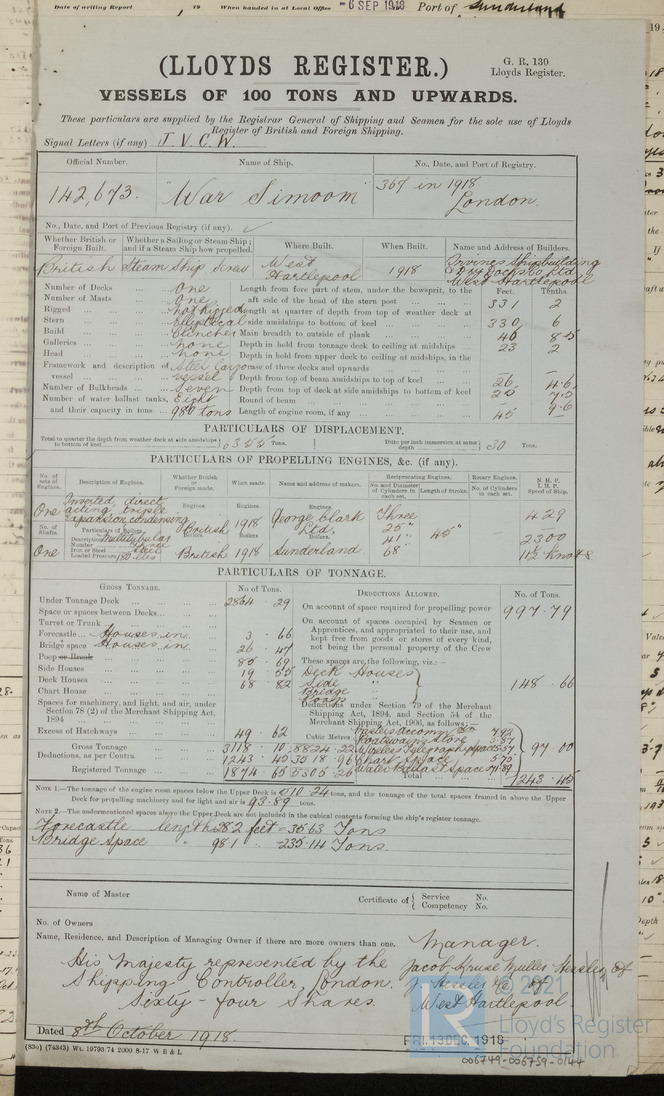 Date of writing Report 19 When handed in at Local Office -6 SEP 1918 Port of Sunderland
(LLOYDS REGISTER.)
G. R. 130
Lloyds Register.
VESSELS OF 100 TONS AND UPWARDS.
These particulars are supplied by the Registrar General of Shipping and Seamen for the sole use of Lloyds
Register of British and Foreign Shipping.
Signal Letters (if any) J. V. C. W.
Official Number. Name of Ship. No., Date, and Port of Registry.
142,673. "War Simoom" 367 in 1918
London.
No., Date, and Port of Previous Registry (if any).
Whether British or Foreign Built. Whether a Sailing or Steam Ship; and if a Steam Ship how propelled. Where Built. When Built. Name and Address of Builders.
British Steam Ship Screw West Hartlepool 1918 Irvines Shipbuilding
& Dry Docks Co Ltd
West Hartlepool
Feet. Tenths.
Number of Decks One Length from fore part of stem, under the bowsprit, to the
Number of Masts One aft side of the head of the stern post 331 2
Rigged not rigged Length at quarter of depth from top of weather deck at
Stern elliptical side amidships to bottom of keel 330 6
Build clencher Main breadth to outside of plank 46 8-5
Galleries none Depth in hold from tonnage deck to ceiling at midships 23 2
Head none Depth in hold from upper deck to ceiling at midships, in the
Framework and description of vessel Steel Cargo vessel case of three decks and upwards
Number of Bulkheads Seven Depth from top of beam amidships to top of keel 26 4.6
Number of water ballast tanks, Eight Depth from top of deck at side amidships to bottom of keel 25 7.5
Round of beam 9.6
and their capacity in tons 980 tons Length of engine room, if any 45
PARTICULARS OF DISPLACEMENT.
Total to quarter the depth from weather deck at side amidships to bottom of keel 6355 Tons. Ditto per inch immersion at same depth 30 Tons.
PARTICULARS OF PROPELLING ENGINES, &c. (if any).
No. of sets of Engines. Description of Engines. Whether British or Foreign made. When made. Name and address of makers. Reciprocating Engines. Rotary Engines. N. H. P.
No. and Diameter of Cylinders in each set. Length of Stroke. No. of Cylinders in each set. I. H. P.
Speed of Ship.
One Inverted, direct acting, triple expansion condensing Engines. British Engines. 1918 Engines. George Clark Ltd. Three 429
No. of Shafts. Particulars of Boilers. Boilers. Boilers. Boilers. 25" 41" 68" 45" 2300
Description Multitubular
Number Three
Iron or Steel Steel
Loaded Pressure 180 lbs
One British 1918 Sunderland 11½ Knots
PARTICULARS OF TONNAGE.
GROSS TONNAGE. No. of Tons. DEDUCTIONS ALLOWED. No. of Tons.
Under Tonnage Deck 2864 . 29 On account of space required for propelling power 997.79
Space or spaces between Decks
Turret or Trunk On account of spaces occupied by Seamen or
Forecastle Houses in 3 . 66 Apprentices, and appropriated to their use, and
Bridge space Houses in 26 . 47 kept free from goods or stores of every kind,
not being the personal property of the Crew
Poop or Break 85 . 69 These spaces are the following, viz.:—
Side Houses 19 . 55 Deck Houses
Deck Houses 68 . 82 Side 148 . 66
Chart House Bridge
Spaces for machinery, and light, and air, under Deductions under Section 79 of the Merchant
Section 78 (2) of the Merchant Shipping Act, Shipping Act, 1894, and Section 54 of the
1894 Merchant Shipping Act, 1906, as follows:—
Excess of Hatchways 49 62 Cubic Metres Masters accommn
Boatswains Store
Gross Tonnage 3118 . 10 8824.22 Wireless Telegraphy space 97 . 00
Deductions, as per Contra 1243 . 45 3518.96 Chart Space
Registered Tonnage 1874 . 65 5305.26 Water Ballast Space
Total 1243.45
NOTE 1.—The tonnage of the engine room spaces below the Upper Deck is 610.24 tons, and the tonnage of the total spaces framed in above the Upper
Deck for propelling machinery and for light and air is 93.89 tons.
NOTE 2.—The undermentioned spaces above the Upper Deck are not included in the cubical contents forming the ship's register tonnage.
Forecastle length 28.2 feet = 35.63 Tons
Bridge Space " 98.1 " 235.14 Tons.
Name of Master Certificate of Service No.
Competency No.
No. of Owners
Name, Residence, and Description of Managing Owner if there are more owners than one.
Manager.
His Majesty represented by the Jacob Kruse Muller Hessler of
Shipping Controller, London. J. Hessler & Co of
Sixty-four Shares. West Hartlepool
Dated 8th October 1918.
FRI. 13 DEC. 1918
(83o) (74343) Wt. 19793/74 2000 8-17 W B & L
© 2021
Lloyd's Register
Foundation
006749-006759-0144